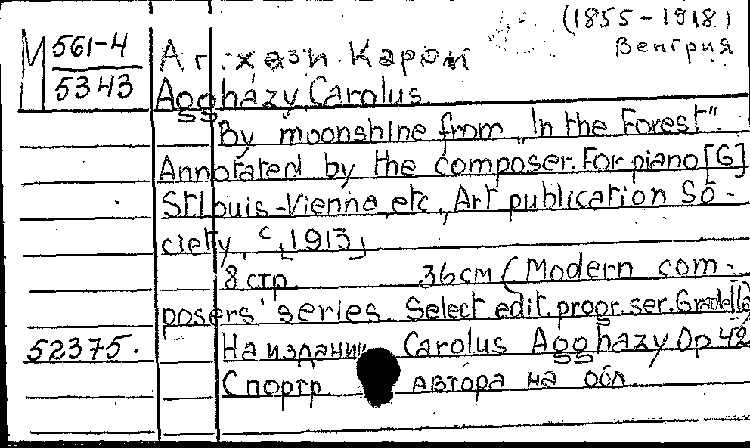 (1855-1918)
Венгрия
М 561-4
5343
Агхази Кароли
Aggházy Carolus
By moonshine from „In the Forest".
Annotated by the composer. For piano [G]
St Louis-Vienna, etc., Art publication So-
ciety, c, [1913]
8 стр. 36 см (Modern com-
posers' series. Select edit. progr. ser.
52375.
На издании Carolus Aggházy Op. 42
С портр автора на обл